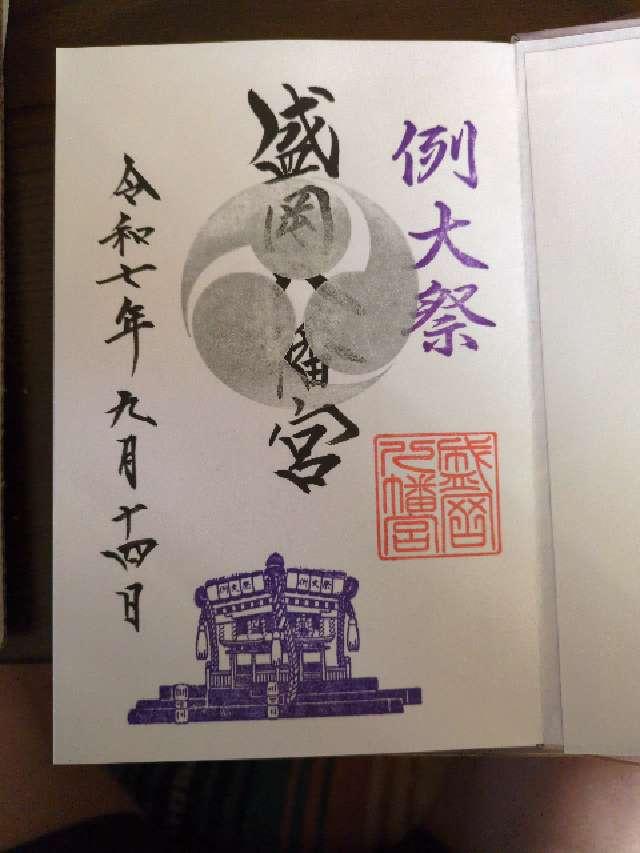 例大祭
盛岡八幡宮
盛岡八幡宮
令和七年九月十四日
例大祭
例大祭